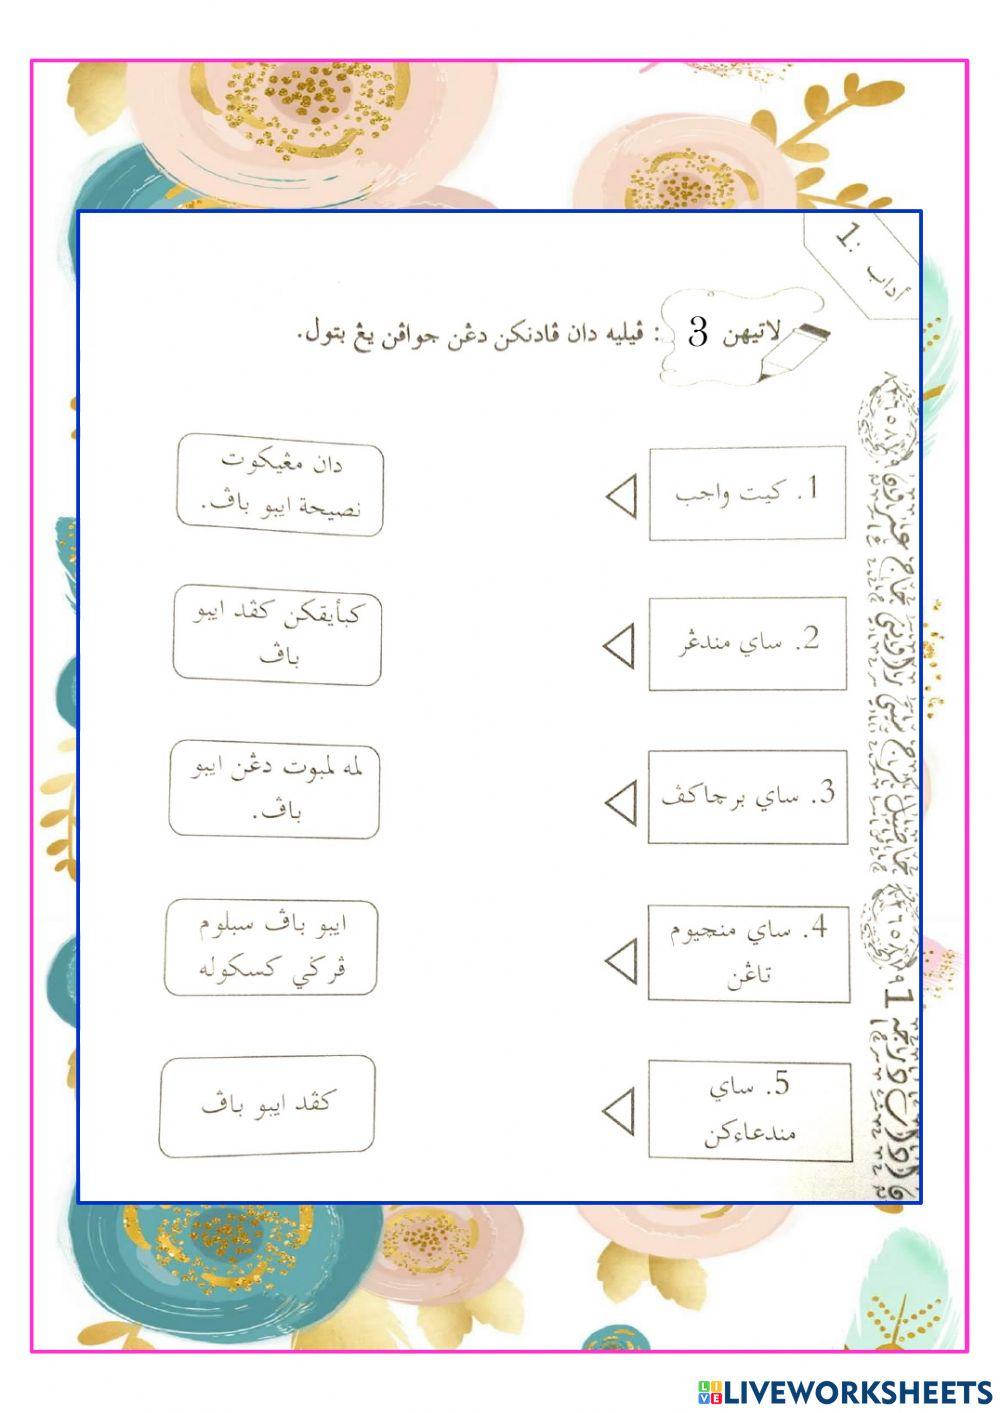 أداب :1
لاتيهن 3 : ڤيليه دان ڤادنكن دڠن جواڤن يڠ بتول.
1. كيت واجب
دان مڠيكوت
نصيحة ايبو باڤ.
2. ساي مندڠر
كبأيقكن كڤد ايبو
باڤ
3. ساي برچاكڤ
لمه لمبوت دڠن ايبو
باڤ.
4. ساي منچيوم
تاڠن
ايبو باڤ سبلوم
ڤرݢي كسكوله
5. ساي
مندعاءكن
كڤد ايبو باڤ
LIVEWORKSHEETS